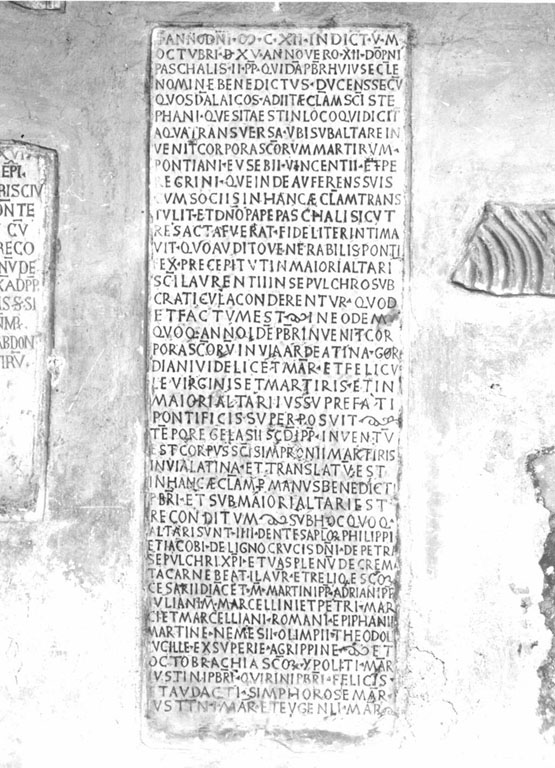 XVI
EPI
RIS CIV
ONTE
CV
RECO
NVDE
KADPP
IS S SI
ABDON
TIRV
ANNO DÑI · ꝏ · C · XII · INDICT · V · M
OCTVBRI · D · XV · ANNO VERO · XII · DOPNI
PASCHALIS · II · PP · QVIDA PBR HVIVS ECLE
NOMINE BENEDICTVS · DVCENS SECV
QVOSDA LAICOS · ADIIT ÆCLAM SCI STE
PHANI · QVE SITA EST IN LOCO QVI DICIT
AQVA TRANSVERSA · VBI SVB ALTARE IN
VENIT CORPORA SCORVM MARTIRVM ·
PONTIANI · EVSEBII · VINCENTII · ET PE
REGRINI · QVE INDE AVFERENS SVIS
VM SOCIIS IN HANC ÆCLAM TRANS
TVLIT · ET DNO PAPE PASCHALI SICVT
RES ACTA FVERAT · FIDELITER INTIMA
VIT · QVO AVDITO VENERABILIS PONTI
FEX · PRECEPIT VT IN MAIORI ALTARI
SCI LAVRENTII IN SEPVLCHRO SVB
CRATICVLA CONDERENTVR · QVOD
ET FACTVM EST IN EODEM
QVOQ · ANNO IDE PBR INVENIT COR
PORA SCORV IN VIA ARDEATINA · GOR
DIANI VIDELICET MAR · ET FELICV
LE VIRGINIS ET MARTIRIS · ET IN
MAIORI ALTARI IVSSV PREFATI
PONTIFICIS · SVPERPOSVIT
TEPORE GELASII SCDI PP · INVENTV
EST CORPVS SCI SIMPRONII MARTIRIS
IN VIA LATINA · ET TRANSLATV EST
IN HANC ÆCLAM P MANVS BENEDICTI
PBRI · ET SVB MAIORI ALTARI EST
RECONDITVM SVB HOC QVOQ ·
ALTARI SVNT · IIII · DENTES APLOR PHILIPPI
ET IACOBI · DE LIGNO CRVCIS DNI · DE PETRA
SEPVLCHRI XPI · ET VAS PLENV DE CREMA
TA CARNE BEATI LAVR · ET RELIQE SCOR
CESARII DIAC ET M · MARTINI PP · ADRIANI PP
VLIANI M · MARCELLINI ET PETRI · MAR
CI ET MARCELLIANI · ROMANI · EPIPHANII
MARTINE · NEMESII · OLIMPII · THEODOL
VCILLE · EXSVPERIE · AGRIPPINE · ET
OCTO BRACHIA SCOR · YPOLITI · MAR
VSTINI PBRI · QVIRINI PBRI · FELICIS ·
TAVDACTI · SIMPHOROSE MAR ·
VSTIN · MAR · ET EVGENII · MAR